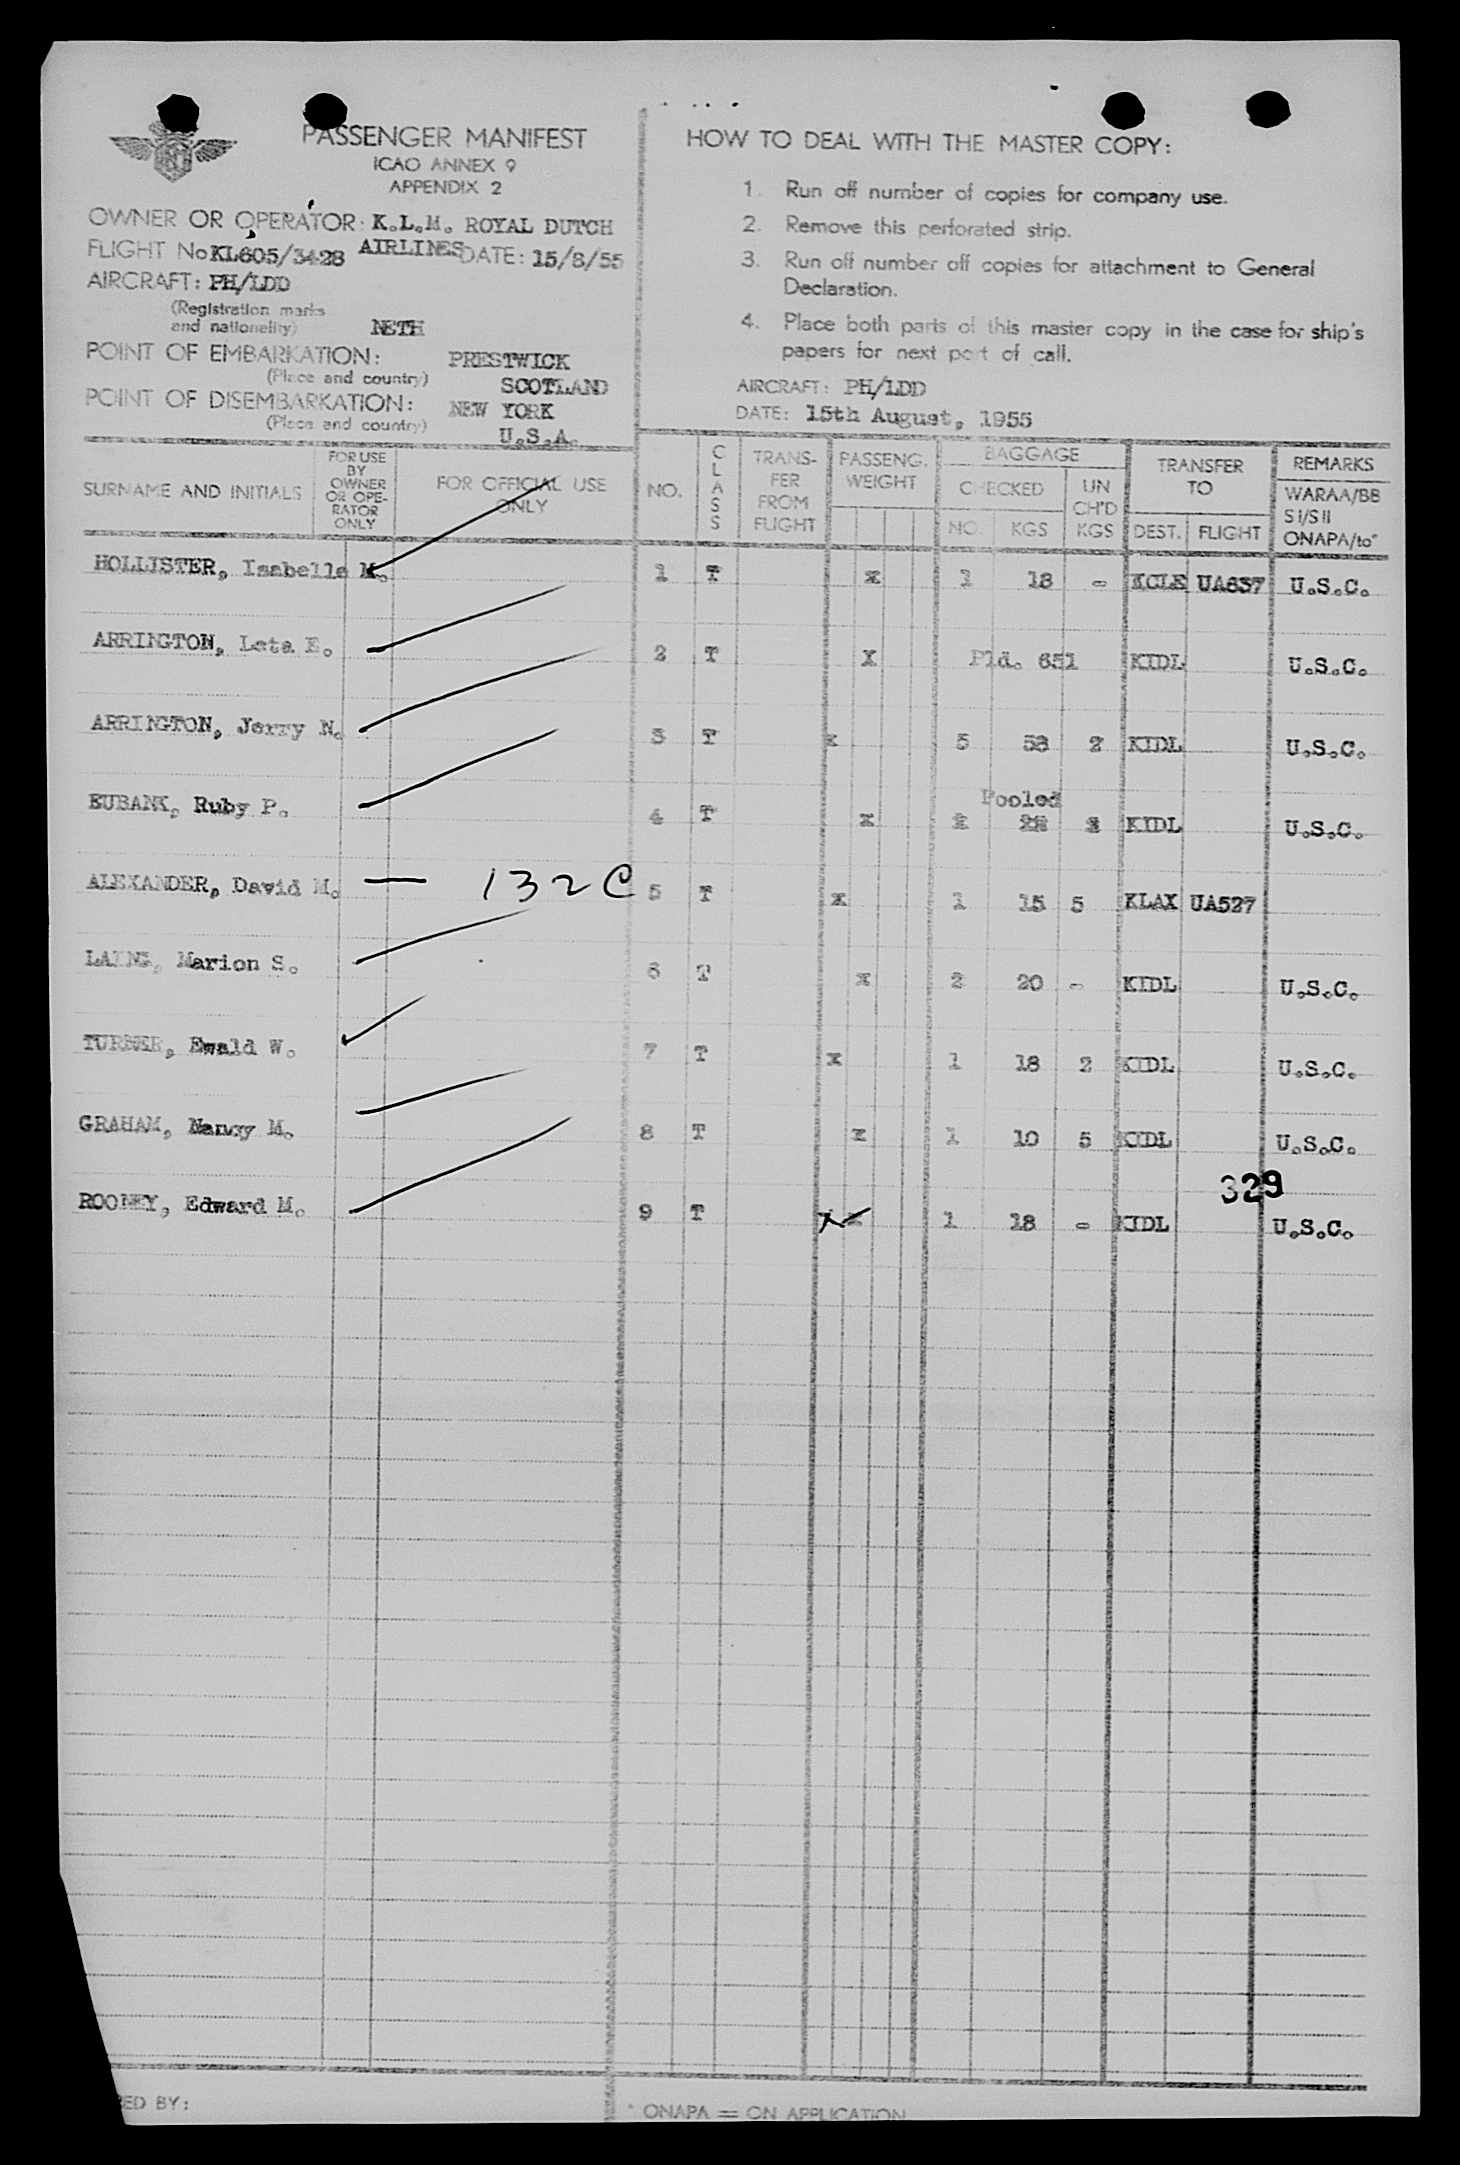 PASSENGER MANIFEST
ICAO ANNEX 9
APPENDIX 2
OWNER OR OPERATOR: K.L.M. ROYAL DUTCH
FLIGHT No KL605/3428 AIRLINES DATE: 15/8/55
AIRCRAFT: PH/LDD
(Registration marks
and nationality) NETH
POINT OF EMBARKATION: PRESTWICK
(Place and country) SCOTLAND
POINT OF DISEMBARKATION: NEW YORK
(Place and country) U.S.A.
HOW TO DEAL WITH THE MASTER COPY:
1. Run off number of copies for company use.
2. Remove this perforated strip.
3. Run off number off copies for attachment to General
Declaration.
4. Place both parts of this master copy in the case for ship's
papers for next port of call.
AIRCRAFT: PH/LDD
DATE: 15th August, 1955
SURNAME AND INITIALS
FOR USE
BY
OWNER
OR OPE-
RATOR
ONLY
FOR OFFICIAL USE
ONLY
NO.
CLASS
TRANS-
FER
FROM
FLIGHT
PASSENG.
WEIGHT
BAGGAGE
CHECKED
NO. KGS
UN
CH'D
KGS
TRANSFER
TO
DEST. FLIGHT
REMARKS
WARAA/BB
SI/SII
ONAPA/to*
HOLLISTER, Isabelle M. 1 T X 1 18 - KCLE UA637 U.S.C.
ARRINGTON, Leta E. 2 T X Pld. 651 KIDL U.S.C.
ARRINGTON, Jerry N. 3 T X 5 53 2 KIDL U.S.C.
Pooled
EUBANK, Ruby P. 4 T X KIDL U.S.C.
ALEXANDER, David M. — 132 C 5 T X 1 15 5 KLAX UA527
Marion S. 6 T X 2 20 - KIDL U.S.C.
TURNER, Ewald W. 7 T X 1 18 2 KIDL U.S.C.
GRAHAM, Nancy M. 8 T X 1 10 5 KIDL U.S.C.
329
ROONEY, Edward M. 9 T X X 1 18 - KIDL U.S.C.
RED BY:
* ONAPA = ON APPLICATION